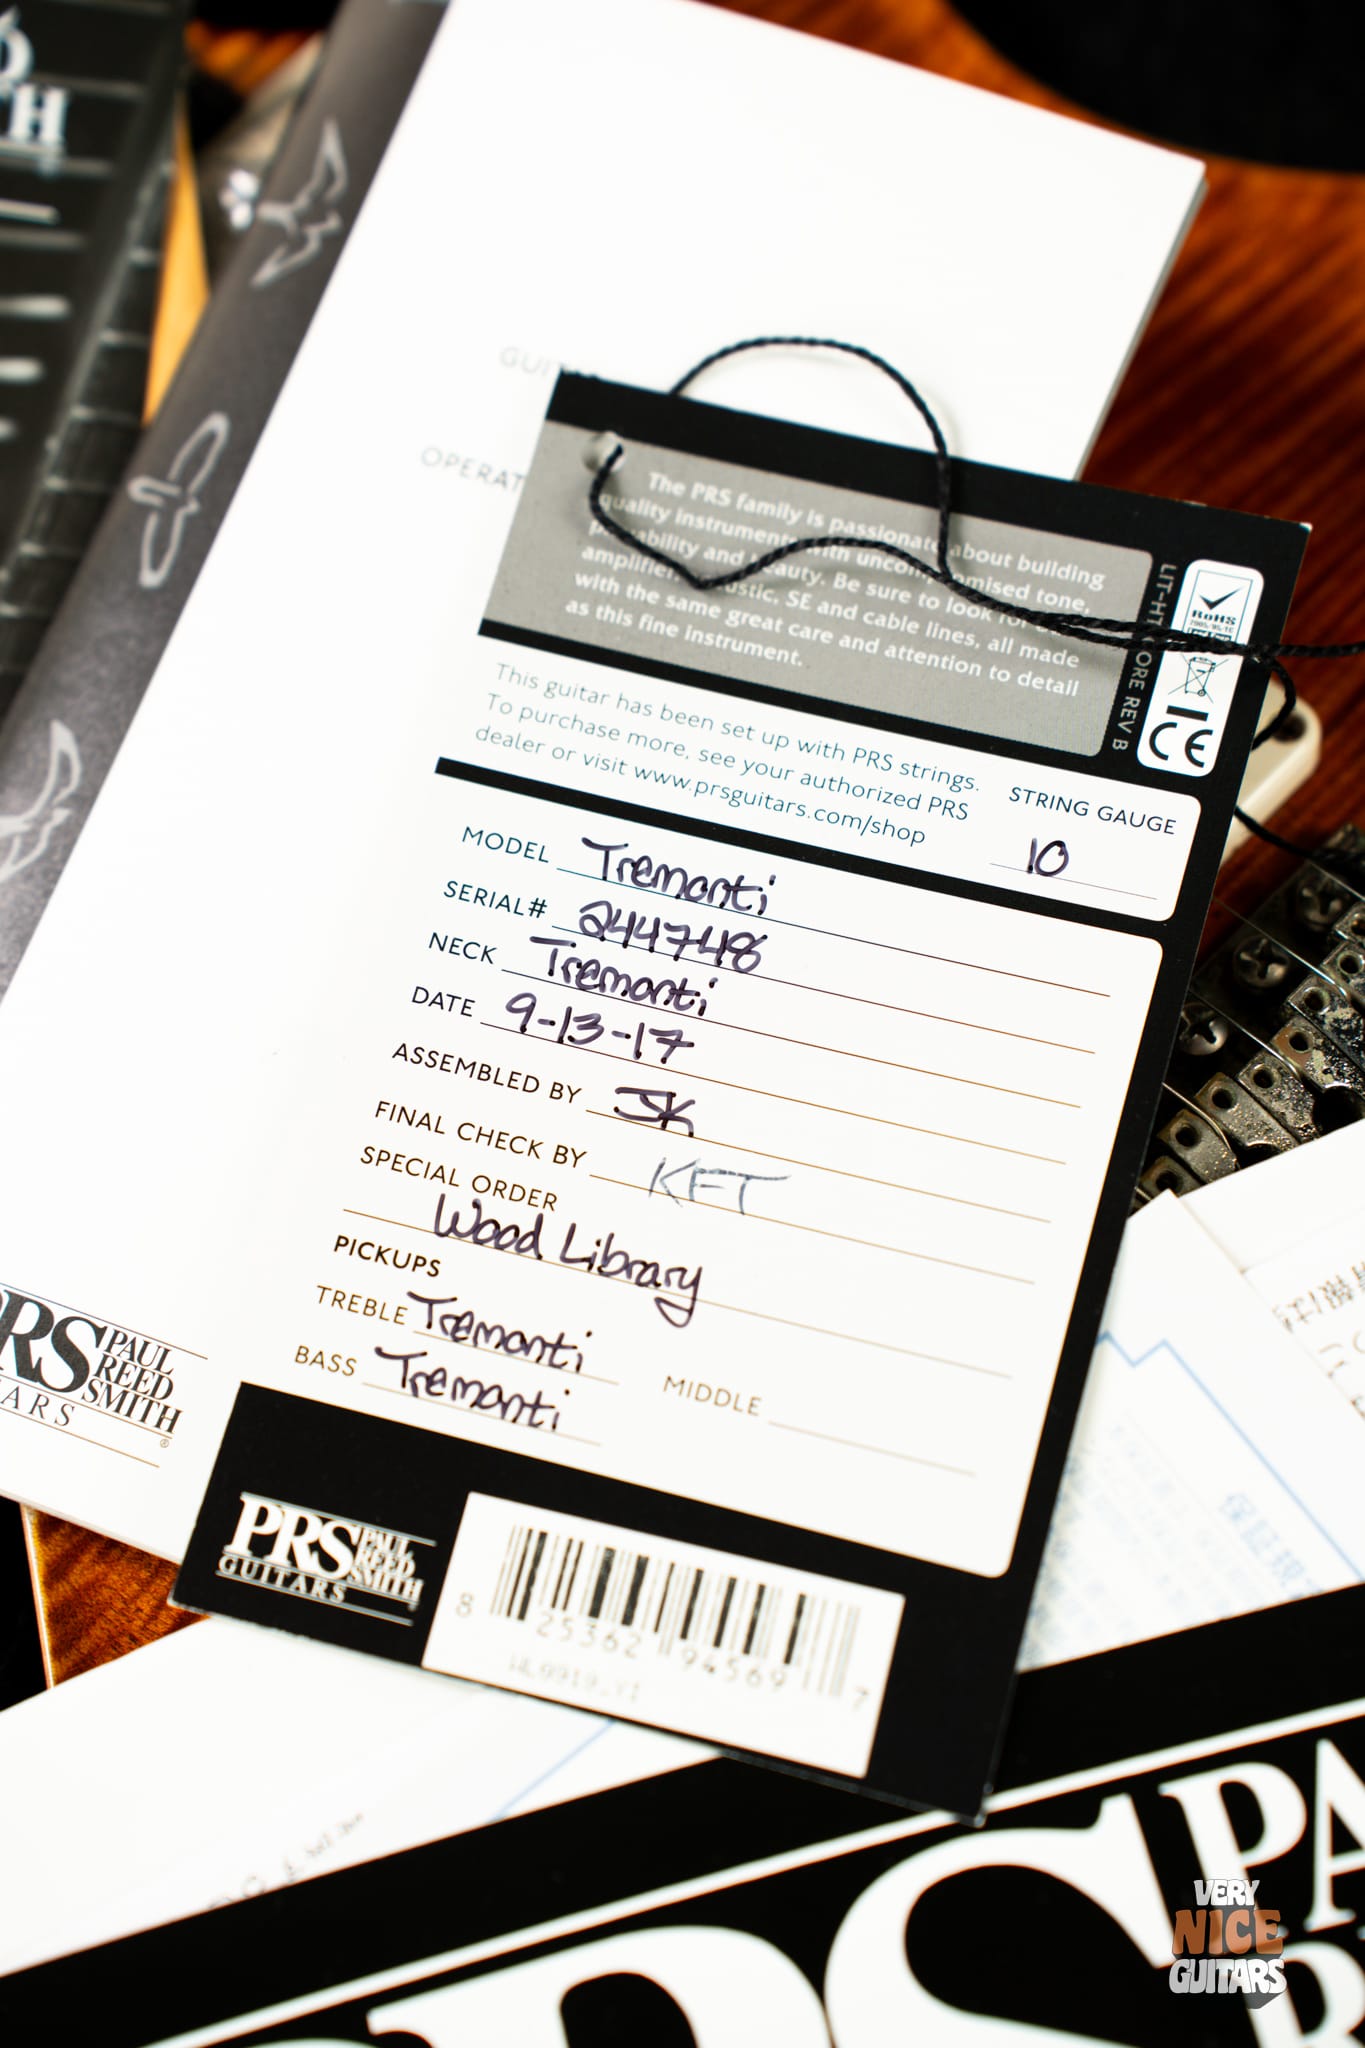 TH
GUIT
OPERAT
The PRS family is passionate about building
quality instruments with uncompromised tone,
and beauty. Be sure to look for
SE and cable lines, all made
with the same great care and attention to detail
as this fine instrument.
RoHS
CE
CORE REV B
This guitar has been set up with PRS strings.
To purchase more, see your authorized PRS
dealer or visit www.prsguitars.com/shop
STRING GAUGE
10
MODEL Tremonti
SERIAL# 244748
NECK Tremonti
DATE 9-13-17
ASSEMBLED BY JK
FINAL CHECK BY KFT
SPECIAL ORDER
Wood Library
PICKUPS
TREBLE Tremonti
BASS Tremonti
MIDDLE
PRS PAUL REED SMITH
ARS
PRS PAUL REED SMITH
GUITARS
8 25362 94569 7
保証規
PRS PA
R
VERY
NICE
GUITARS